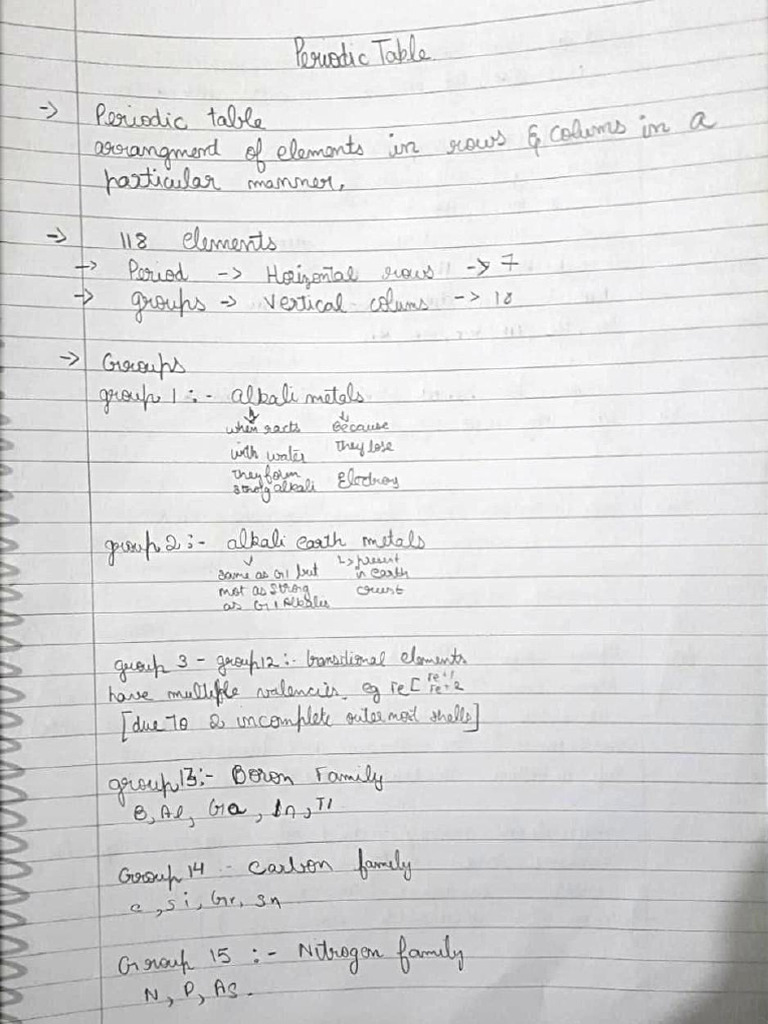 Periodic Table
-> Periodic table
arrangmend of elements in rows & colums in a
particular manner,
-> 118 elements
-> Period -> Horizontal rows -> 7
-> groups -> Vertical colums -> 18
-> Groups
group 1 :- alkali metals
when racts because
with water they lose
they form Elections
strong alkali
group 2 :- alkali earth metals
same as G1 but -> present
not as strong in earth
as G1 Alkalies crust
group 3 - group 12 :- transitional elements
have multiple valencies. eg
[due to 2 incomplete outermost shells]
group 13 :- Boron Family
B, Al, Ga, In, Tl
Group 14 :- Carbon family
c, si, Ge, Sn
Group 15 :- Nitrogen family
N, P, As.